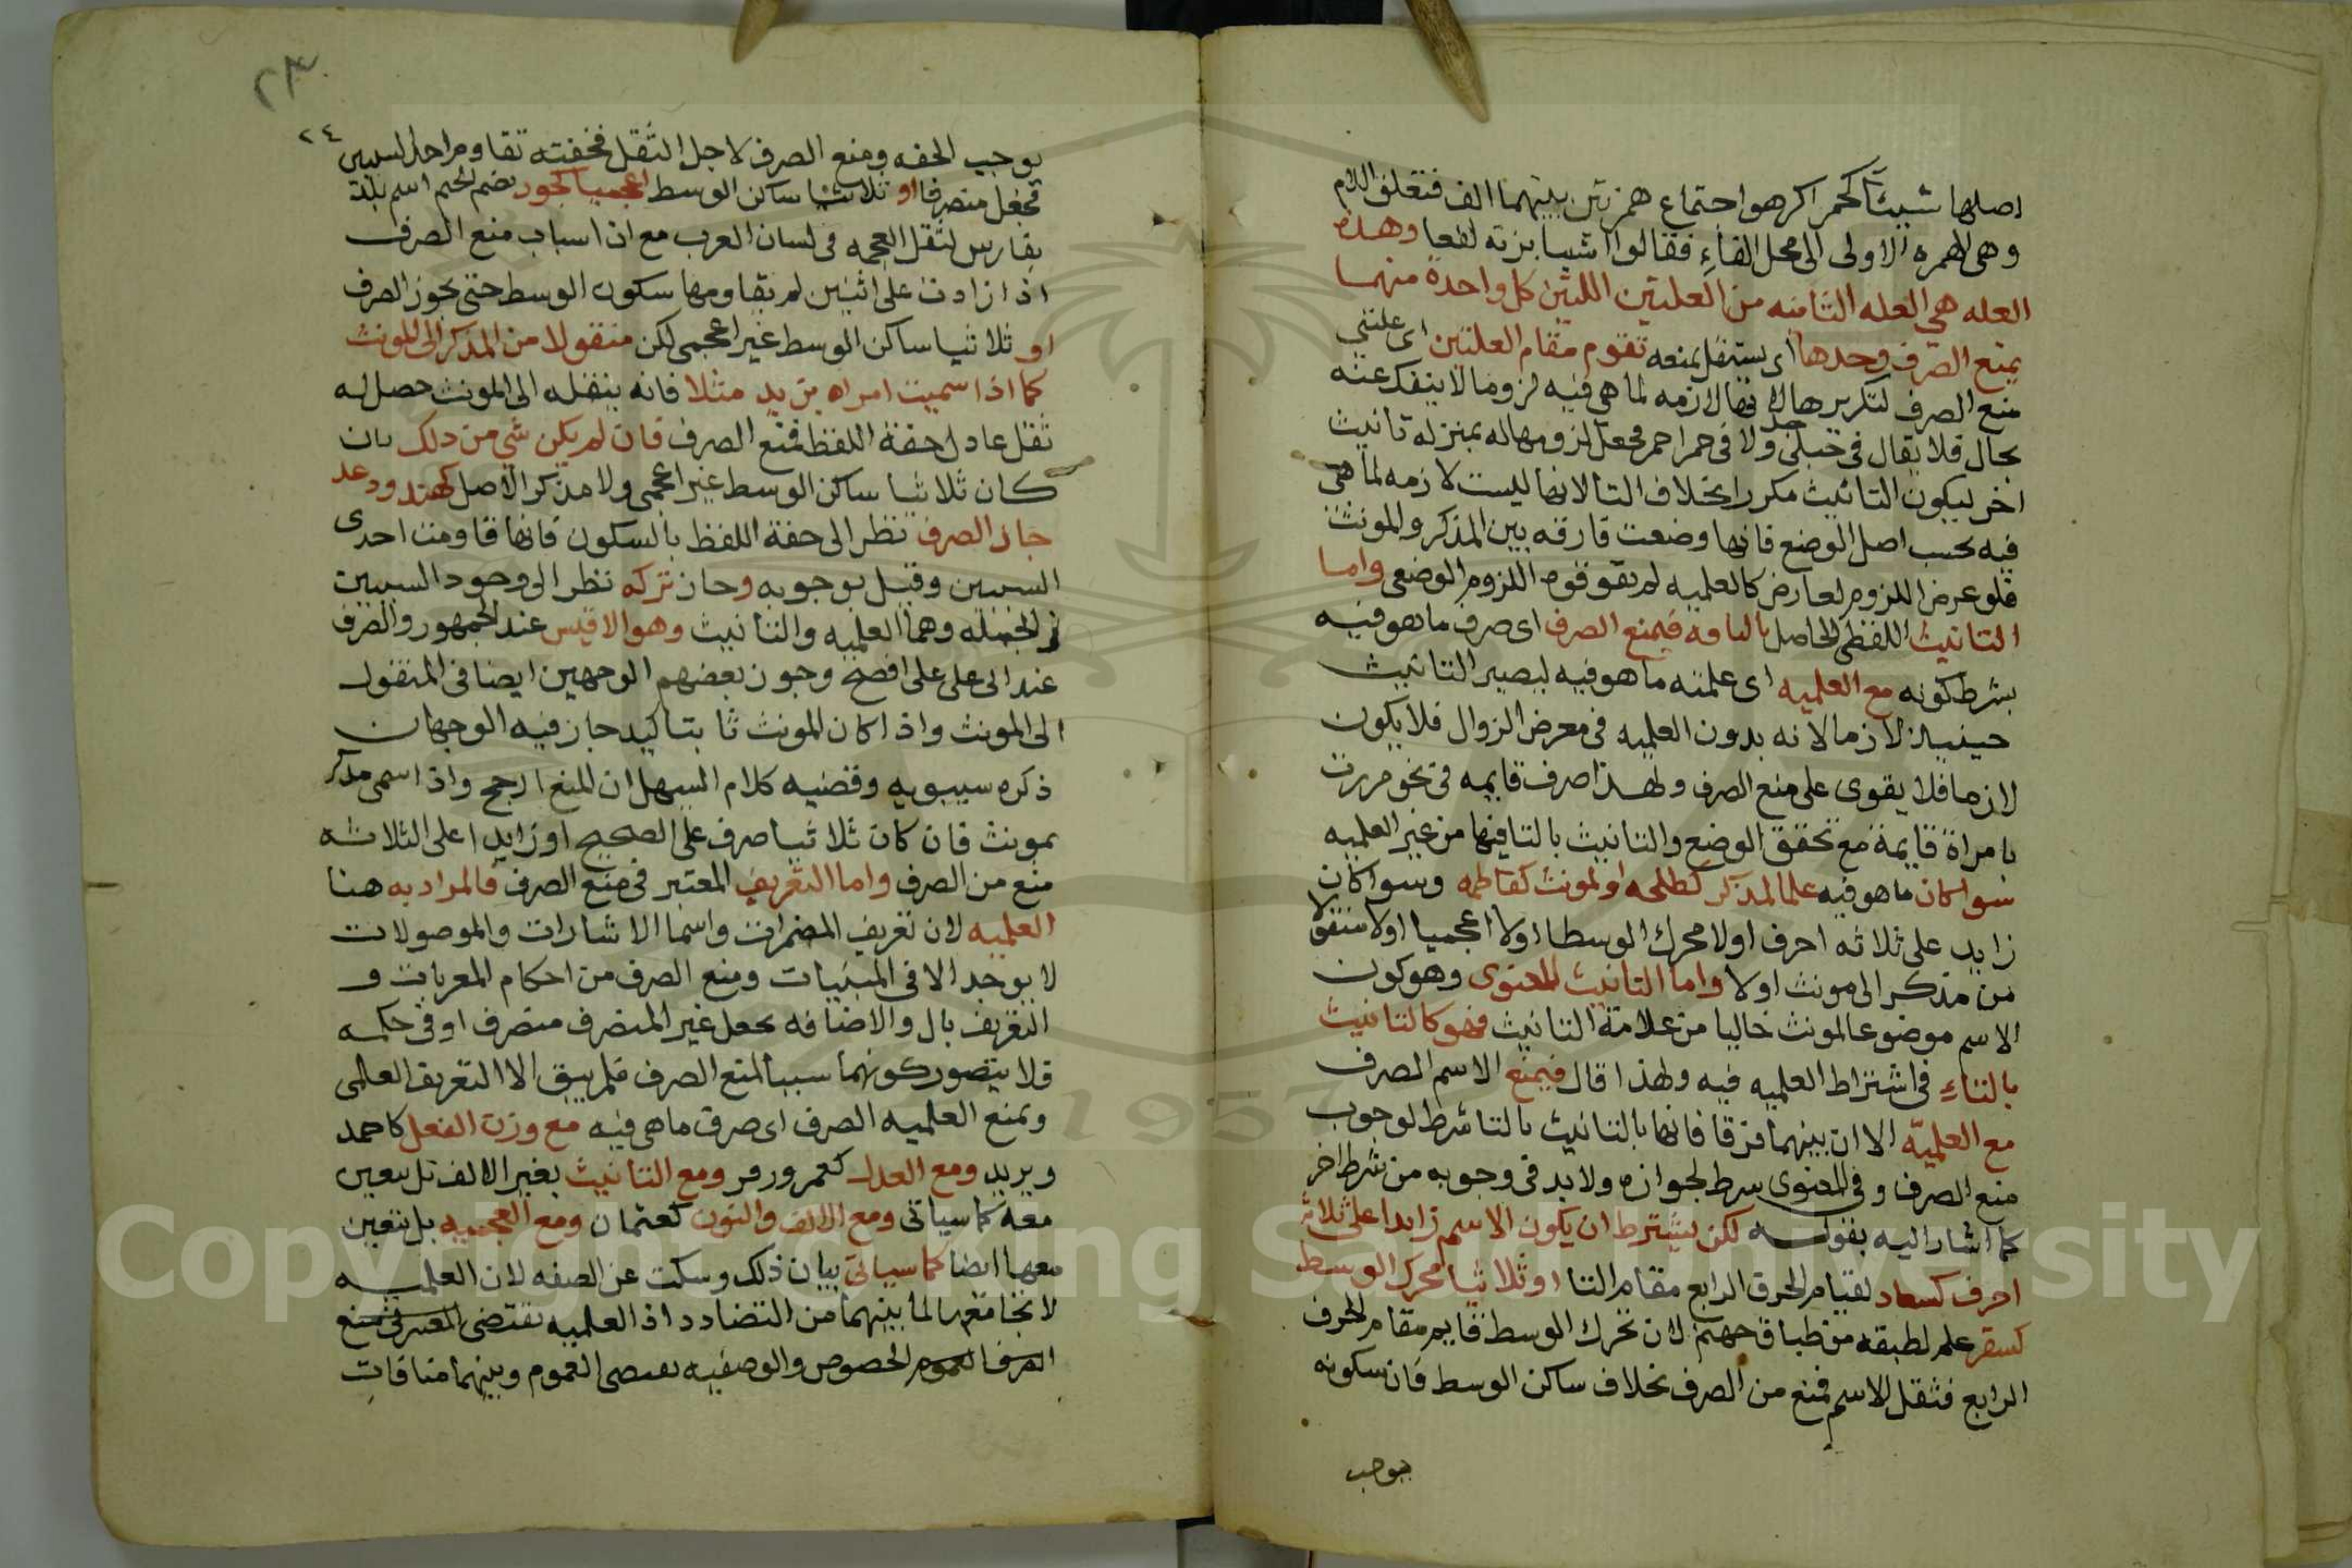 اصلها شيئآ كحمرا كرهوا اجتماع همزتين بينهما الف فنقلوا اللام
وهى الهمزه الاولى الى محل الفاءِ فقالوا اشيا بزنه لفعا وهذه
العله هي العله الثانيه من العلتين اللتين كل واحدة منهما
يمنع الصرف وحدها اى يستقل بمنعه تقوم مقام العلتين اى علتي
منع الصرف لتكريرها لانها لازمه لما هى فيه لزوما لا ينفك عنه
بحال فلا يقال فى حبلى حبل ولا فى حمرا حمر فجعل لزومها له بمنزله تانيث
اخر ليكون التانيث مكررا بخلاف التا لانها ليست لازمه لما هى
فيه بحسب اصل الوضع فانها وضعت فارقه بين المذكر والمونث
فلو عرض اللزوم لعارض كالعلميه لم يقو قوه اللزوم الوضعى واما
التانيث اللفظى الحاصل بالتا فيمنع الصرف اى صرف ما هو فيه
بشرط كونه مع العلميه اى علمية ما هو فيه ليصير التانيث
حينيذ لازما لانه بدون العلميه فى معرض الزوال فلا يكون
لازما فلا يقوى على منع الصرف ولهذا صرف قايمه فى نحو مررت
بامراة قايمة مع تحقق الوضع والتانيث بالتا فيها من غير العلميه
سوا كان ما هو فيه علما لمذكر كطلحه او لمونث كفاطمه وسوا كان
زايد على ثلاثه احرف اولا محرك الوسط اولا اعجميا اولا منقولا
من مذكر الى مونث اولا واما التانيث المعنوى وهو كون
الاسم موضوعا لمونث خاليا من علامة التانيث فهو كالتانيث
بالتاءِ فى اشتراط العلميه فيه ولهذا قال فيمنع الاسم الصرف
مع العلميّه الا ان بينهما فرقا فانها بالتانيث بالتا شرط لوجوب
منع الصرف وفى المعنوى شرط لجوازه ولا بد فى وجوبه من شرط اخر
كما اشار اليه بقوله لكن يشترط ان يكون الاسم زايدا على ثلاثه
احرف كسعاد لقيام الحرف الرابع مقام التا او ثلاثيا محرك الوسط
كسقر علم لطبقه من طباق جهنم لان تحرك الوسط قايم مقام الحرف
الرابع فثقل الاسم فمنع من الصرف بخلاف ساكن الوسط فان سكونه
يوجب
٢٣
٢٤
يوجب الخفه ومنع الصرف لاجل الثقل فخفته تقاوم احد السببين
فجعل منصرفا او ثلاثيا ساكن الوسط اعجميا كجور بضم الجيم اسم بلدة
بفارس لثقل العجمه فى لسان العرب مع ان اسباب منع الصرف
اذا زادت على اثنين لم يقاومها سكون الوسط حتى يجوز الصرف
او ثلاثيا ساكن الوسط غير اعجمى لكن منقولا من المذكر الى المونث
كما اذا سميت امراه بزيد مثلا فانه بنقله الى المونث حصل له
ثقل عادل خفة اللفظ فمنع الصرف فان لم يكن شي من ذلك بان
كان ثلاثيا ساكن الوسط غير اعجمى ولا مذكر الاصل كهند ودعد
جاز الصرف نظرا الى خفة اللفظ بالسكون فانها قاومت احدى
السببين وقيل بوجوبه وجاز تركه نظر الى وجود السببين
فى الجمله وهما العلميه والتانيث وهو الاقيس عند الجمهور والصرف
عند ابى على على افصح وجوز بعضهم الوجهين ايضا فى المنقول
الى المونث واذا كان المونث ثنائيا كيد جاز فيه الوجهان
ذكره سيبويه وقضيه كلام السهيل ان المنع ارجح واذا سمى مذكر
بمونث فان كان ثلاثيا صرف على الصحيح او زايدا على الثلاثه
منع من الصرف واما التعريف المعتبر فى منع الصرف فالمراد به هنا
العلميه لان تعريف المضمرات واسما الاشارات والموصولات
لا يوجد الا فى المبنيات ومنع الصرف من احكام المعربات و
التعريف بال والاضافه يجعل غير المنصرف منصرف او فى حكمه
فلا يتصور كونهما سببا لمنع الصرف فلم يبق الا التعريف العلمى
وتمنع العلميه الصرف اى صرف ما هى فيه مع وزن الفعل كاحمد
ويزيد ومع العدل كعمر وزفر ومع التانيث بغير الالف بل يتعين
معه كما سياتى ومع الالف والنون كعثمان ومع العجميه بل يتعين
معها ايضا كما سياتى بيان ذلك وسكت عن الصفه لان العلميه
لا تجامعها لما بينهما من التضادد اذ العلميه تقتضى
الخصوص والوصفيه تقتضى العموم وبينهما منافات
Copyright © King Saud University
1957